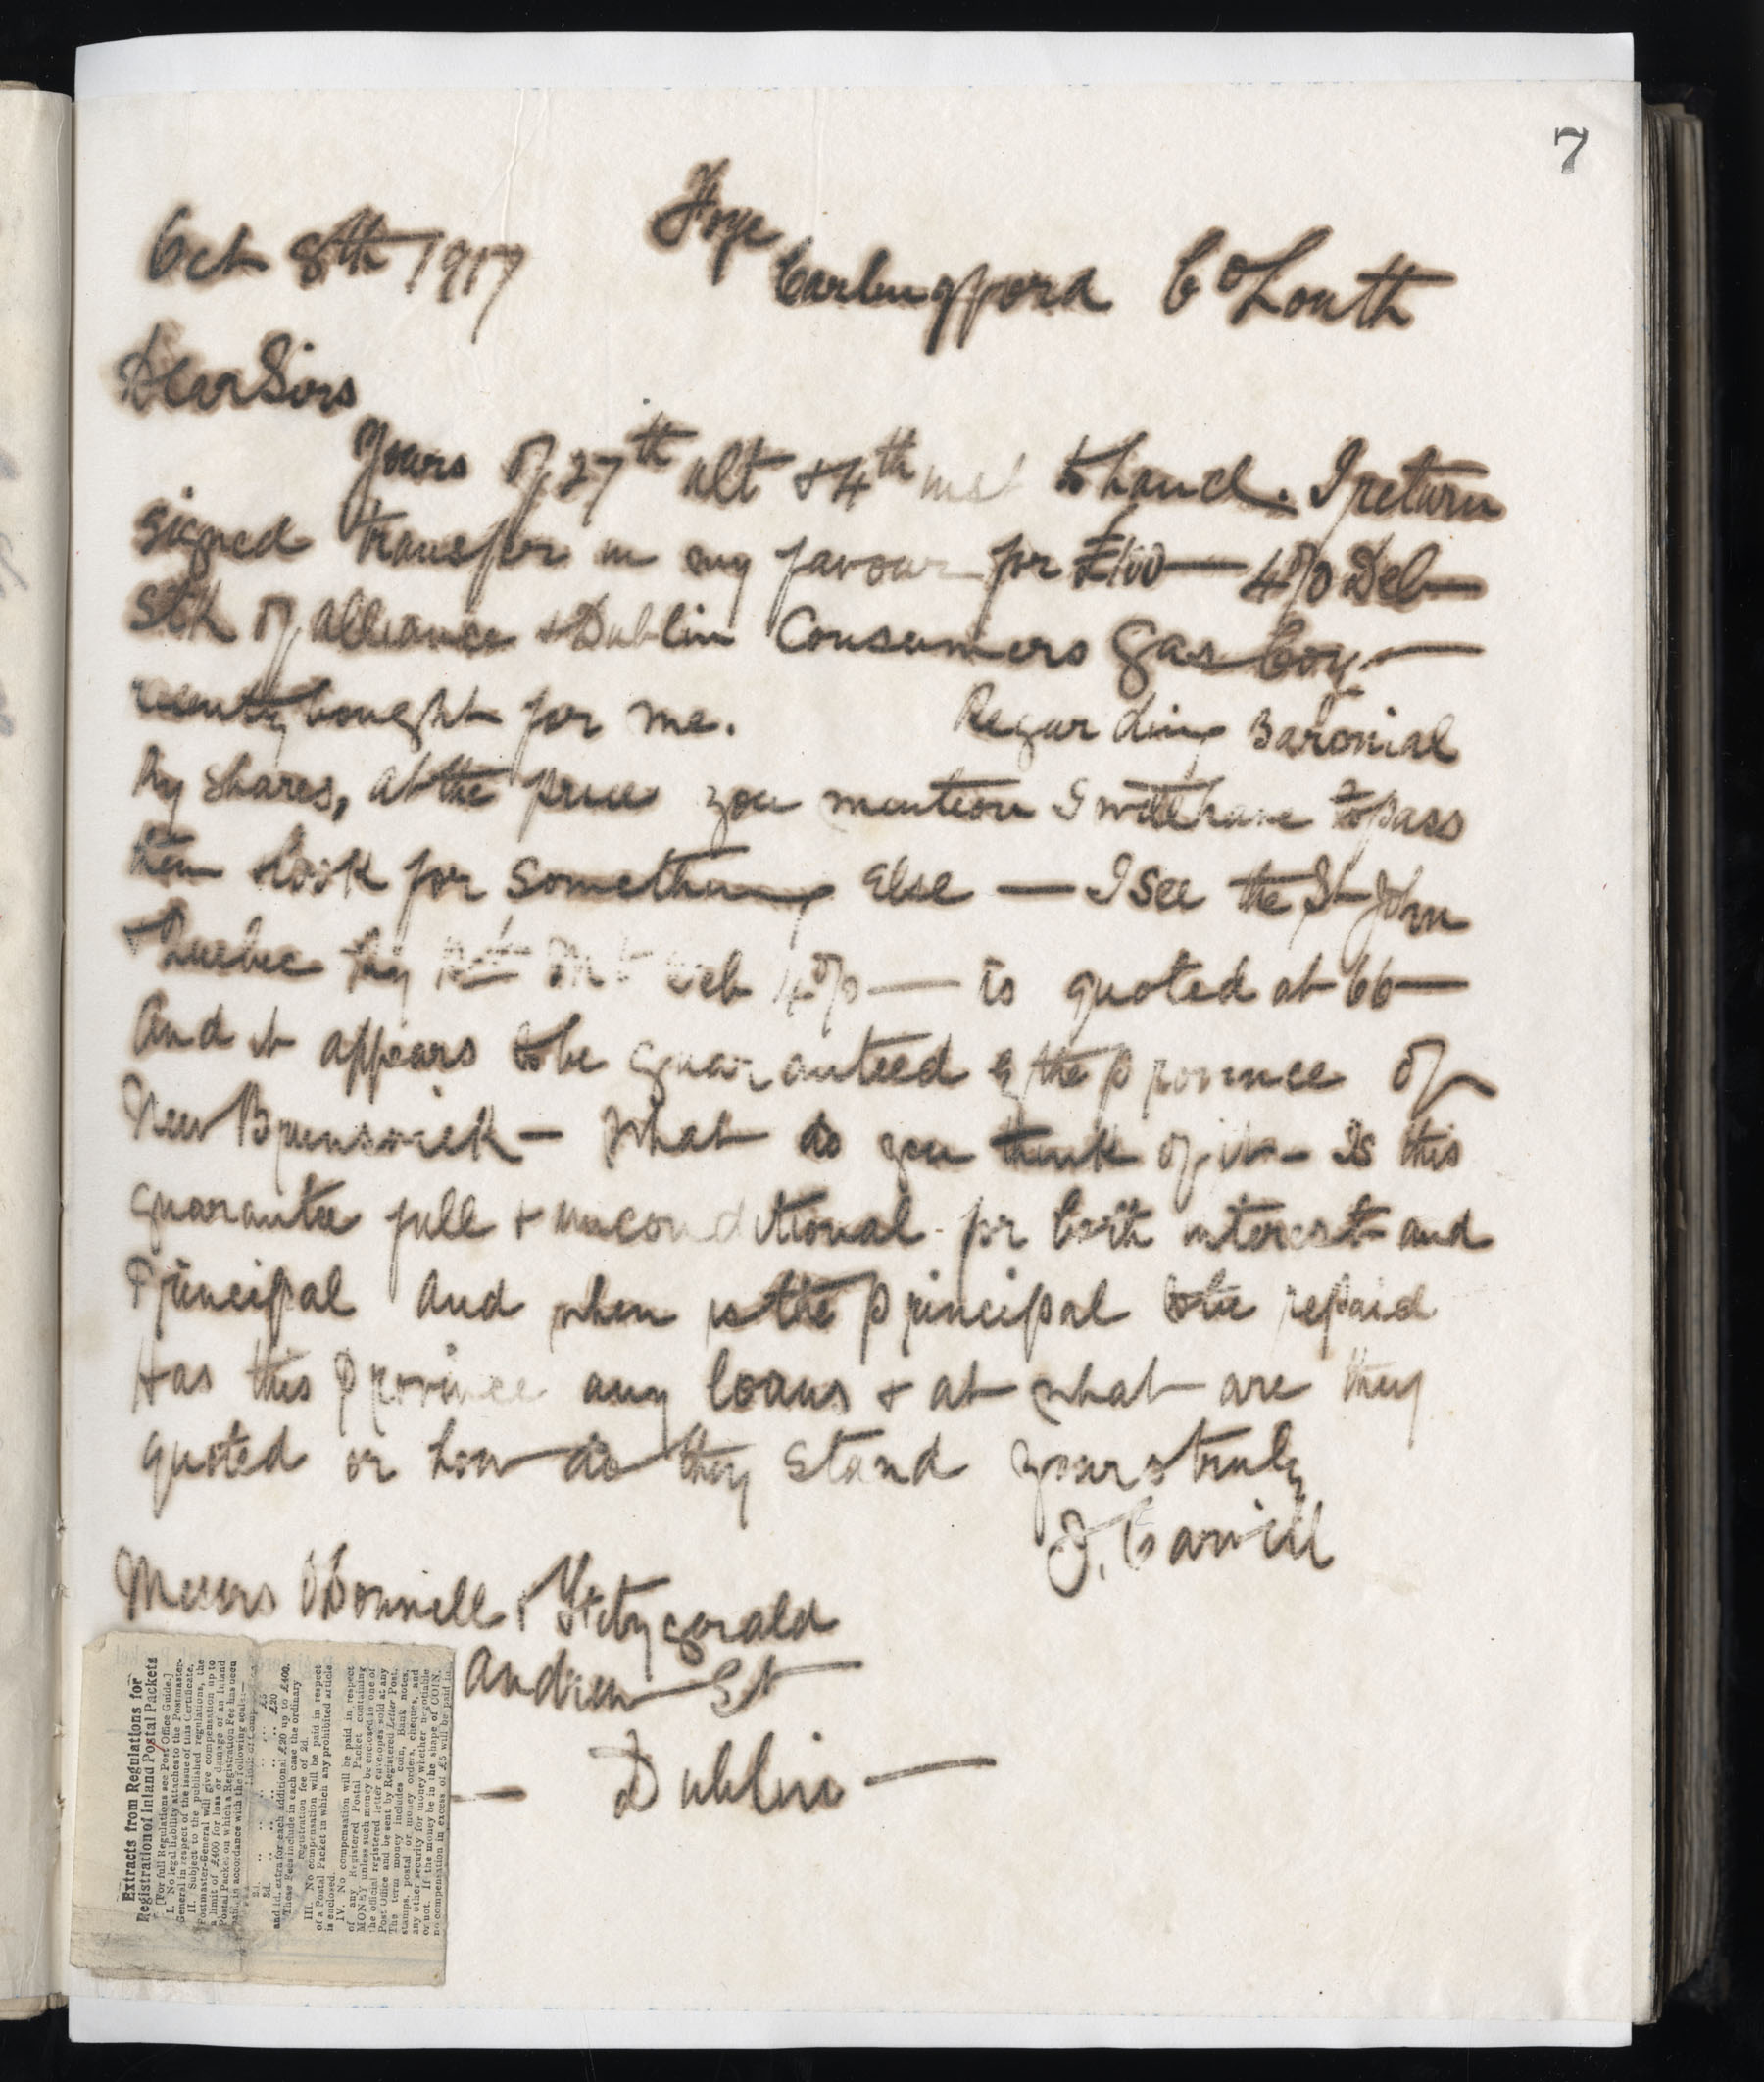 7
Oct 8th 1917 Foye
Carlingford Co Louth
Dear Sirs
Yours of 27th ult & 4th inst to hand. I return
signed transfer in my favour for £100 — 4% Deb
Stk of Alliance & Dublin Consumers Gas Coy —
recently bought for me. Regarding Baronial
Ry shares, at the price you mention I will have to pass
them & look for something else — I see the St John
& Quebec Rly 1st Mt Deb 4% — is quoted at 66 —
And it appears to be guaranteed by the province of
New Brunswick — What do you think of it — Is this
guarantee full & unconditional for both interest and
Principal and when is the principal to be repaid
Has this province any loans & at what are they
quoted or how do they stand yours truly
J. Carvill
Messrs O'Donnell & Fitzgerald
Andrew St
— Dublin —
Extracts from Regulations for
Registration of Inland Postal Packets
[For full Regulations see Post Office Guide.]
I. No legal liability attaches to the Postmaster-
General in respect of the issue of this Certificate.
II. Subject to the published regulations, the
Postmaster-General will give compensation up to
a limit of £400 for loss or damage of an Inland
Postal Packet on which a Registration Fee has been
paid, in accordance with the following scale:—
2d. .. .. .. £5
3d. .. .. .. £20
and 1d. extra for each additional £20 up to £400.
These Fees include in each case the ordinary
registration fee of 2d.
III. No compensation will be paid in respect
of a Postal Packet in which any prohibited article
is enclosed.
IV. No compensation will be paid in respect
of any Registered Postal Packet containing
MONEY unless such money be enclosed in one of
the official registered letter envelopes sold at any
Post Office and be sent by Registered Letter Post.
The term money includes coin, Bank notes,
stamps, postal or money orders, cheques, and
any other security for money whether negotiable
or not. If the money be in the shape of COIN,
no compensation in excess of £5 will be paid in